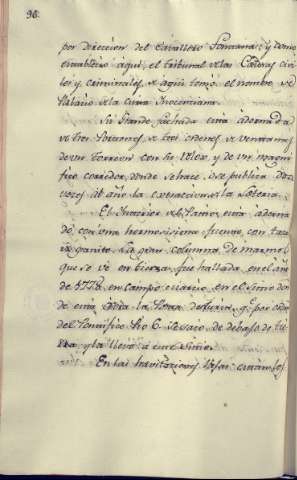 96.
por Direccion del Cavallero Fontana: y como
establecio aqui, el tribunal de las Causas civi-
les y criminales, de aqui tomó el nombre de
Palacio de la Curia Inocenciana.
Su Grande fachada está adornada
de tres Portones, de tres ordenes de ventanas
de un torreon con su relox, y de un magni-
fico corredor, donde se hace, dos publica dos
veces al año la extraccion de la Loteria.
El Interior del Patio, está adorna-
do con una hermosisima fuente, con taza
de granito. La gran columna de marmol
que se vé en tierra, fue hallada en el año
de 1778. en campo marzo, en el sitio don-
de está la
del Pontifice Pio 6. se saco de debajo de tie-
rra, y la llevó á este Sitio.
En las havitaciones bajas están los